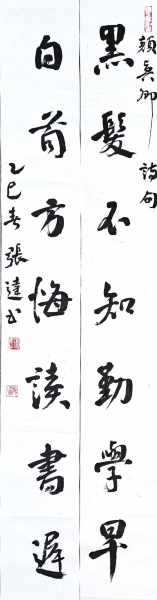 顔真卿詩句
黑髮不知勤學早
白首方悔讀書遲
乙巳春張達書